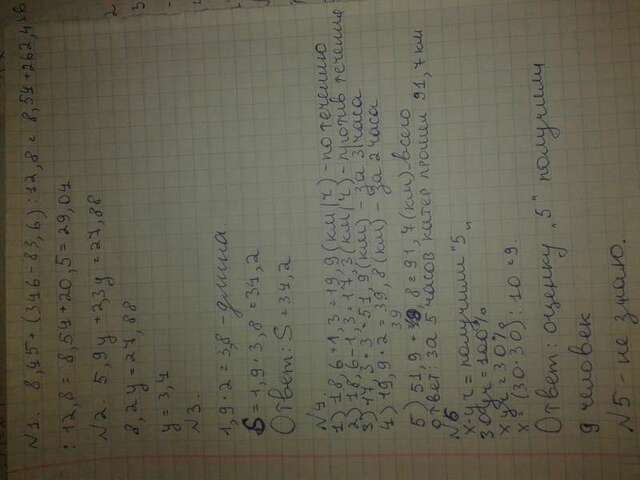 №1. 8,45+(346-83,6):12,8=8,54+262,4:
:12,8=8,54+20,5=29,04
№2. 5,9y+2,3y=27,88
8,2y=27,88
y=3,4
№3.
1,9·2=3,8-длина
S=1,9·3,8=34,2
Ответ: S=34,2
№4.
1) 18,6+1,3=19,9(км/ч)-по течению
2) 18,6-1,3=17,3(км/ч)-против течение
3) 17,3·3=51,9(км)-за 3 часа
4) 19,9·2=39,8(км)-за 2 часа
5) 51,9+39,8=91,7(км)-всего
Ответ: за 5 часов катер прошел 91,7км
№6
x-уч=получили "5"
30уч=100%
x уч=30%
x=(30·30):10=9
Ответ: оценку "5" получили
9 человек
№5-не знаю.